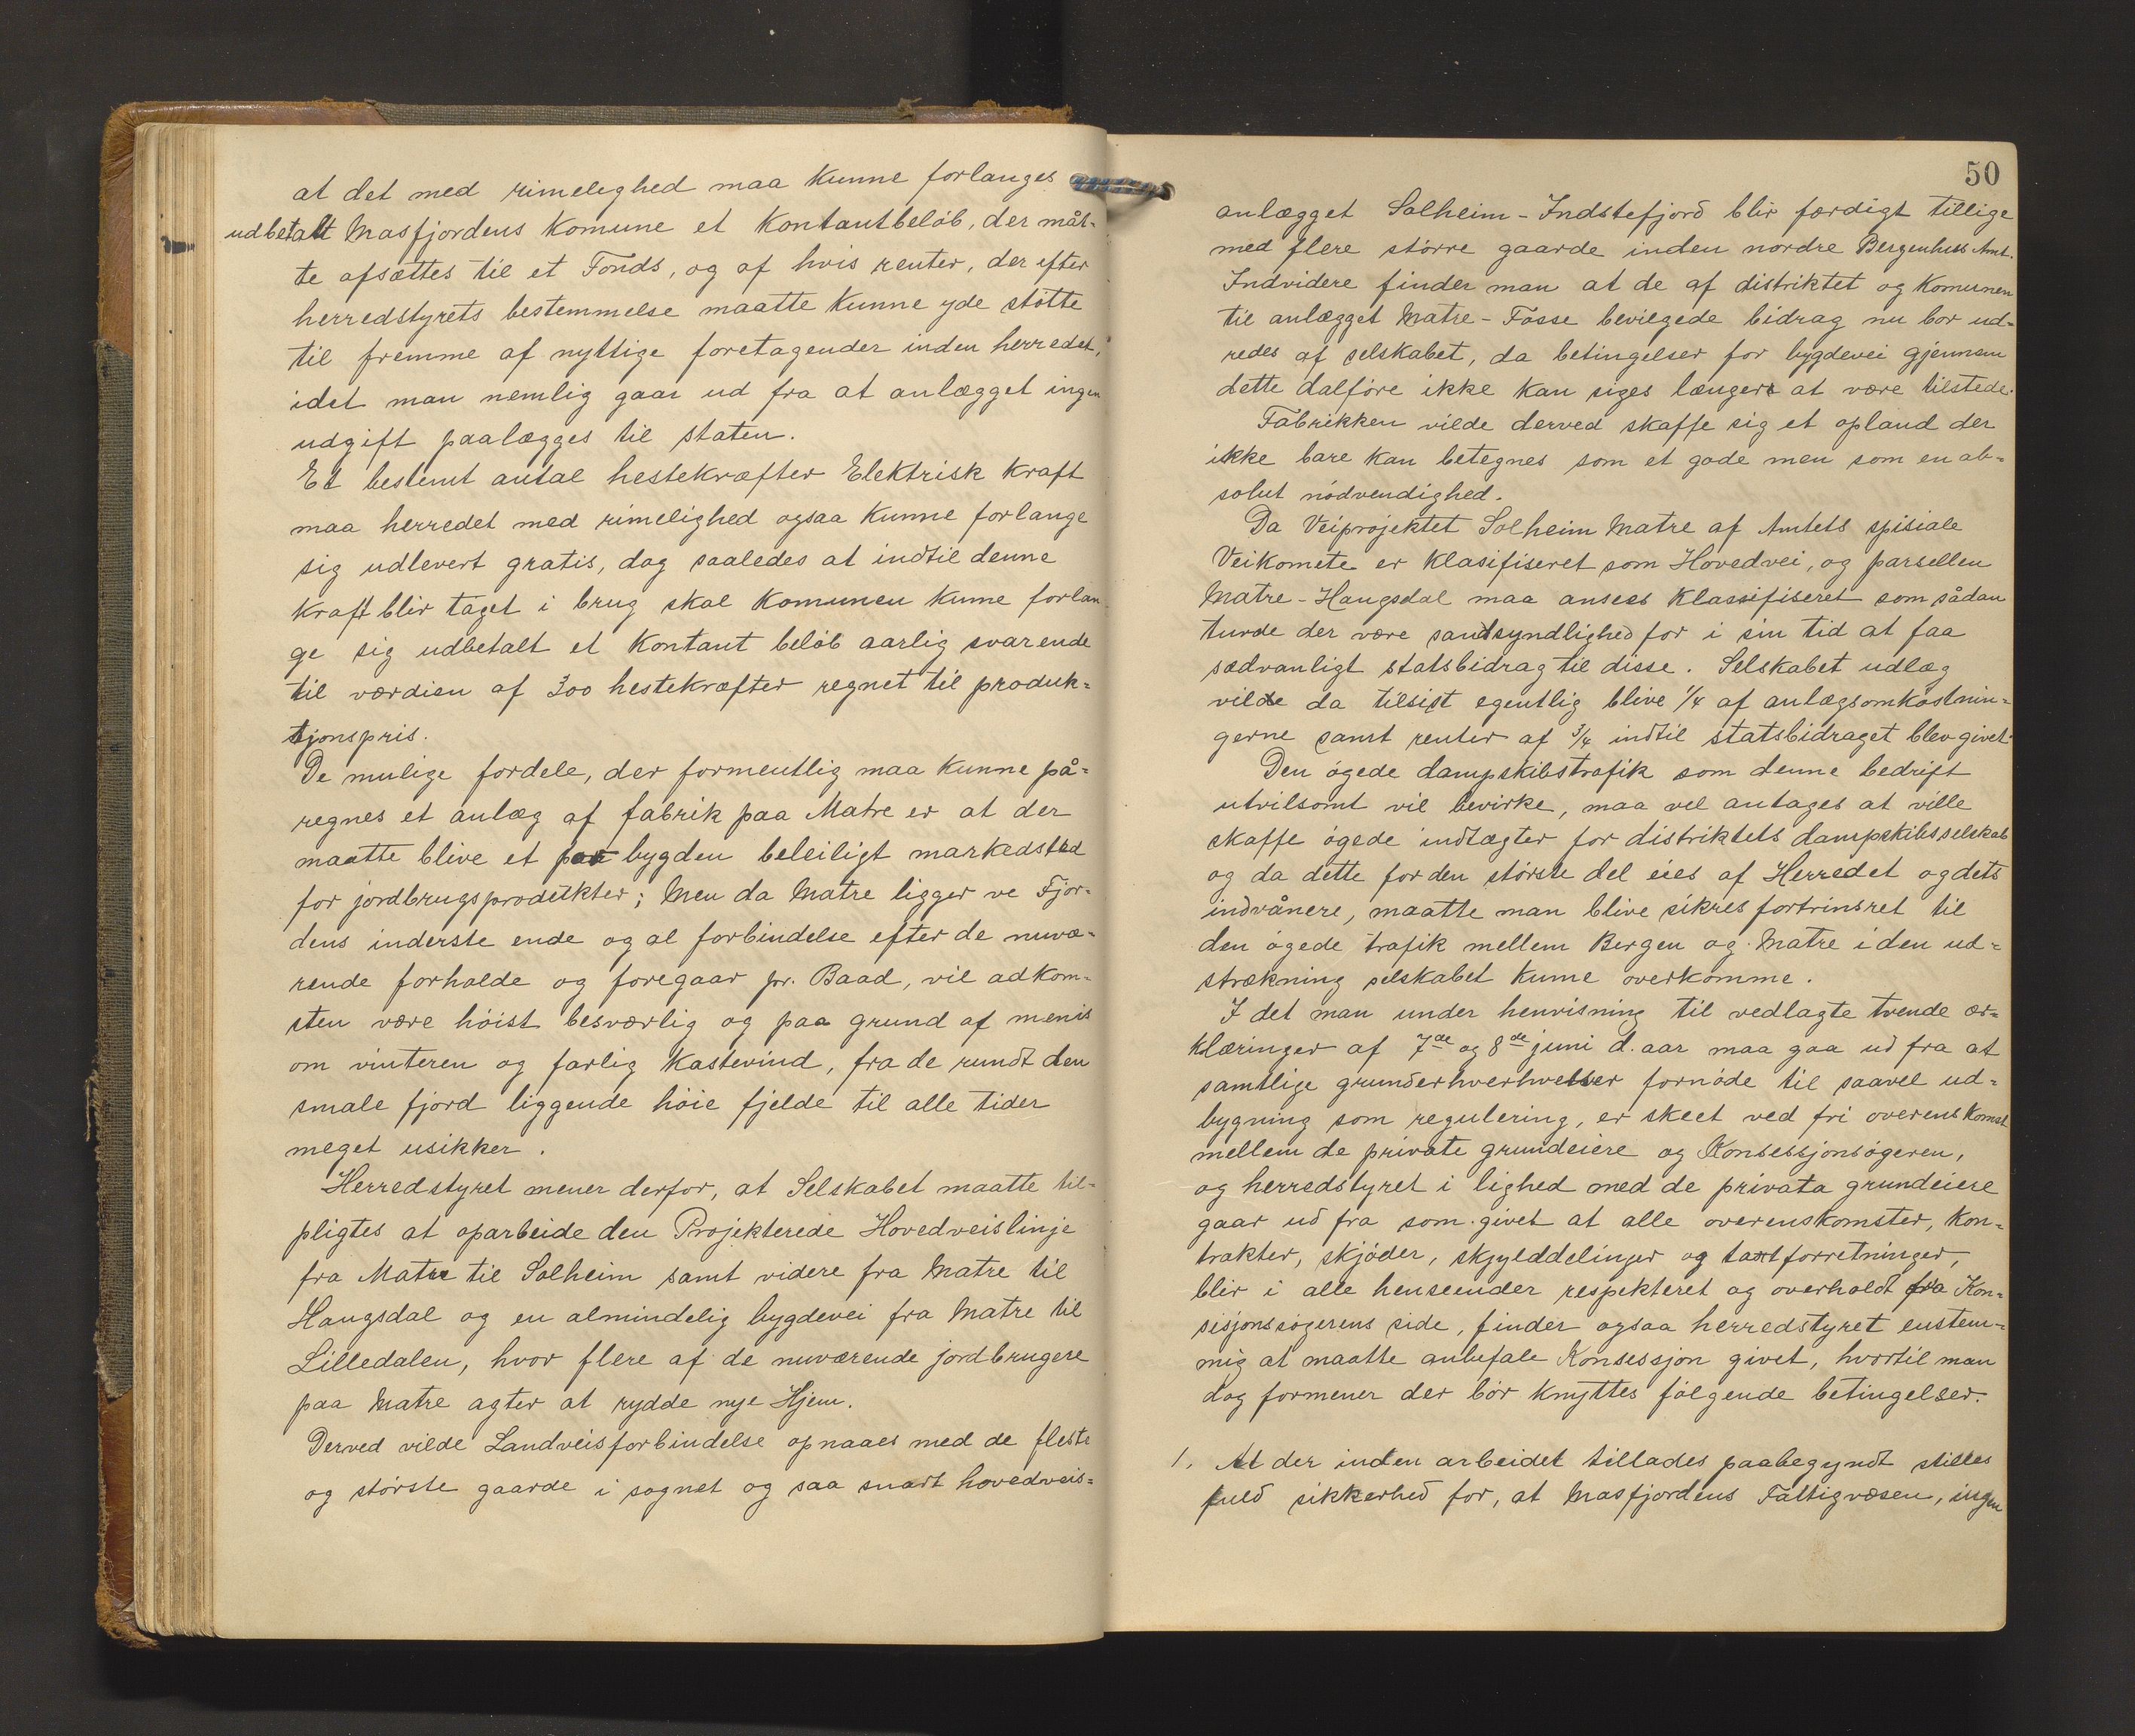 at det med rimelighed maa kunne forlanges
udbetalt Masfjordens Komune et Kontantbeløb, der måt-
te afsættes til et Fonds, og af hvis renter, der efter
herredstyrets bestemmelse maatte kunne yde støtte
til fremme af nyttige foretagender inden herredet,
idet man nemlig gaar ud fra at anlægget ingen
udgift paalægges til staten.
Et bestemt antal hestekræfter Elektrisk Kraft
maa herredet med rimelighed ogsaa kunne forlange
sig udlevert gratis, dog saaledes at indtil denne
Kraft blir taget i brug skal Komunen kunne forlan-
ge sig udbetalt et Kontant beløb aarlig svarende
til værdien af 300 hestekræfter regnet til produk=
tjonspris.
De mulige fordele, der formentlig maa kunne på=
regnes et anlæg af fabrik paa Matre er at der
maatte blive et bygden beleiligt markedsted
for jordbrugsprodukter; Men da Matre ligger ve Fjor=
dens inderste ende og al forbindelse efter de nuvæ=
rende forholde og foregaar pr. Baad, vil adkom=
sten være høist besværlig og paa grund af menis
om vinteren og farlig Kastevind, fra de rundt den
smale fjord liggende høie fjelde til alle tider
meget usikker.
Herredstyret mener derfor, at Selskabet maatte til-
pligtes at oparbeide den Projekterede Hovedveislinje
fra Matre til Solheim samt videre fra Matre til
Haugsdal og en almindelig bygdevei fra Matre til
Lilledalen, hvor flere af de nuværende jordbrugere
paa Matre agter at rydde nye Hjem.
Derved vilde Landveisforbindelse opnaaes med de fleste
og største gaarde i sognet og saa snart hovedveis=
50
anlægget Solheim-Indstefjord blir færdigt tillige
med flere større gaarde inden nordre Bergenhus Amt.
Indvidere finder man at de af distriktet og Komunen
til anlægget Matre-Fosse bevilgede bidrag nu bør ud=
redes af selskabet, da betingelser for bygdevei gjennem
dette dalføre ikke kan siges længere at være tilstede.
Fabrikken vilde derved skaffe sig et opland der
ikke bare kan betegnes som et gode men som en ab=
solut nødvendighed.
Da Veiprojektet Solheim Matre af Amtets spisiale
Veikomete er klasifiseret som Hovedvei, og parsellen
Matre-Haugsdal maa ansees klassifiseret som sådan
turde der være sandsyndlighed for i sin tid at faa
sædvanligt statsbidrag til disse. Selskabet udlæg
vilde da tilsist egentlig blive 1/4 af anlægsomkostnin=
gerne samt renter af 3/4 indtil statsbidraget blev givet.
Den øgede dampskibstrafik som denne bedrift
utvilsomt vil bevirke, maa vel antages at ville
skaffe øgede indtægter for distriktets dampskibsselskab
og da dette for den største del eies af Herredet og dets
indvånere, maatte man blive sikres fortrinsret til
den øgede trafik mellem Bergen og Matre i den ud=
strækning selskabet kunne overkomme.
I det man under henvisning til vedlagte tvende ær=
klæringer af 7de og 8de juni d. aar maa gaa ud fra at
samtlige grunderhverhvelser fornøde til saavel ud=
bygning som regulering, er skeet ved fri overenskomst
mellem de private grundeiere og Konsessjonsøgeren,
og herredstyret i lighed med de privata grundeiere
gaar ud fra som givet at alle overenskomster, kon=
trakter, skjøder, skjylddelinger og taxtforretninger,
blir i alle henseender respekteret og overholdt fra Kon=
sisjonssøgerens side, finder ogsaa herredstyret enstem=
mig at maatte anbefale Konsessjon givet, hvortil man
dog formener der bør knyttes følgende betingelser.
1. At der inden arbeidet tillades paabegyndt stilles
fuld sikkerhed for, at Masfjordens Fattigvæsen, ingen